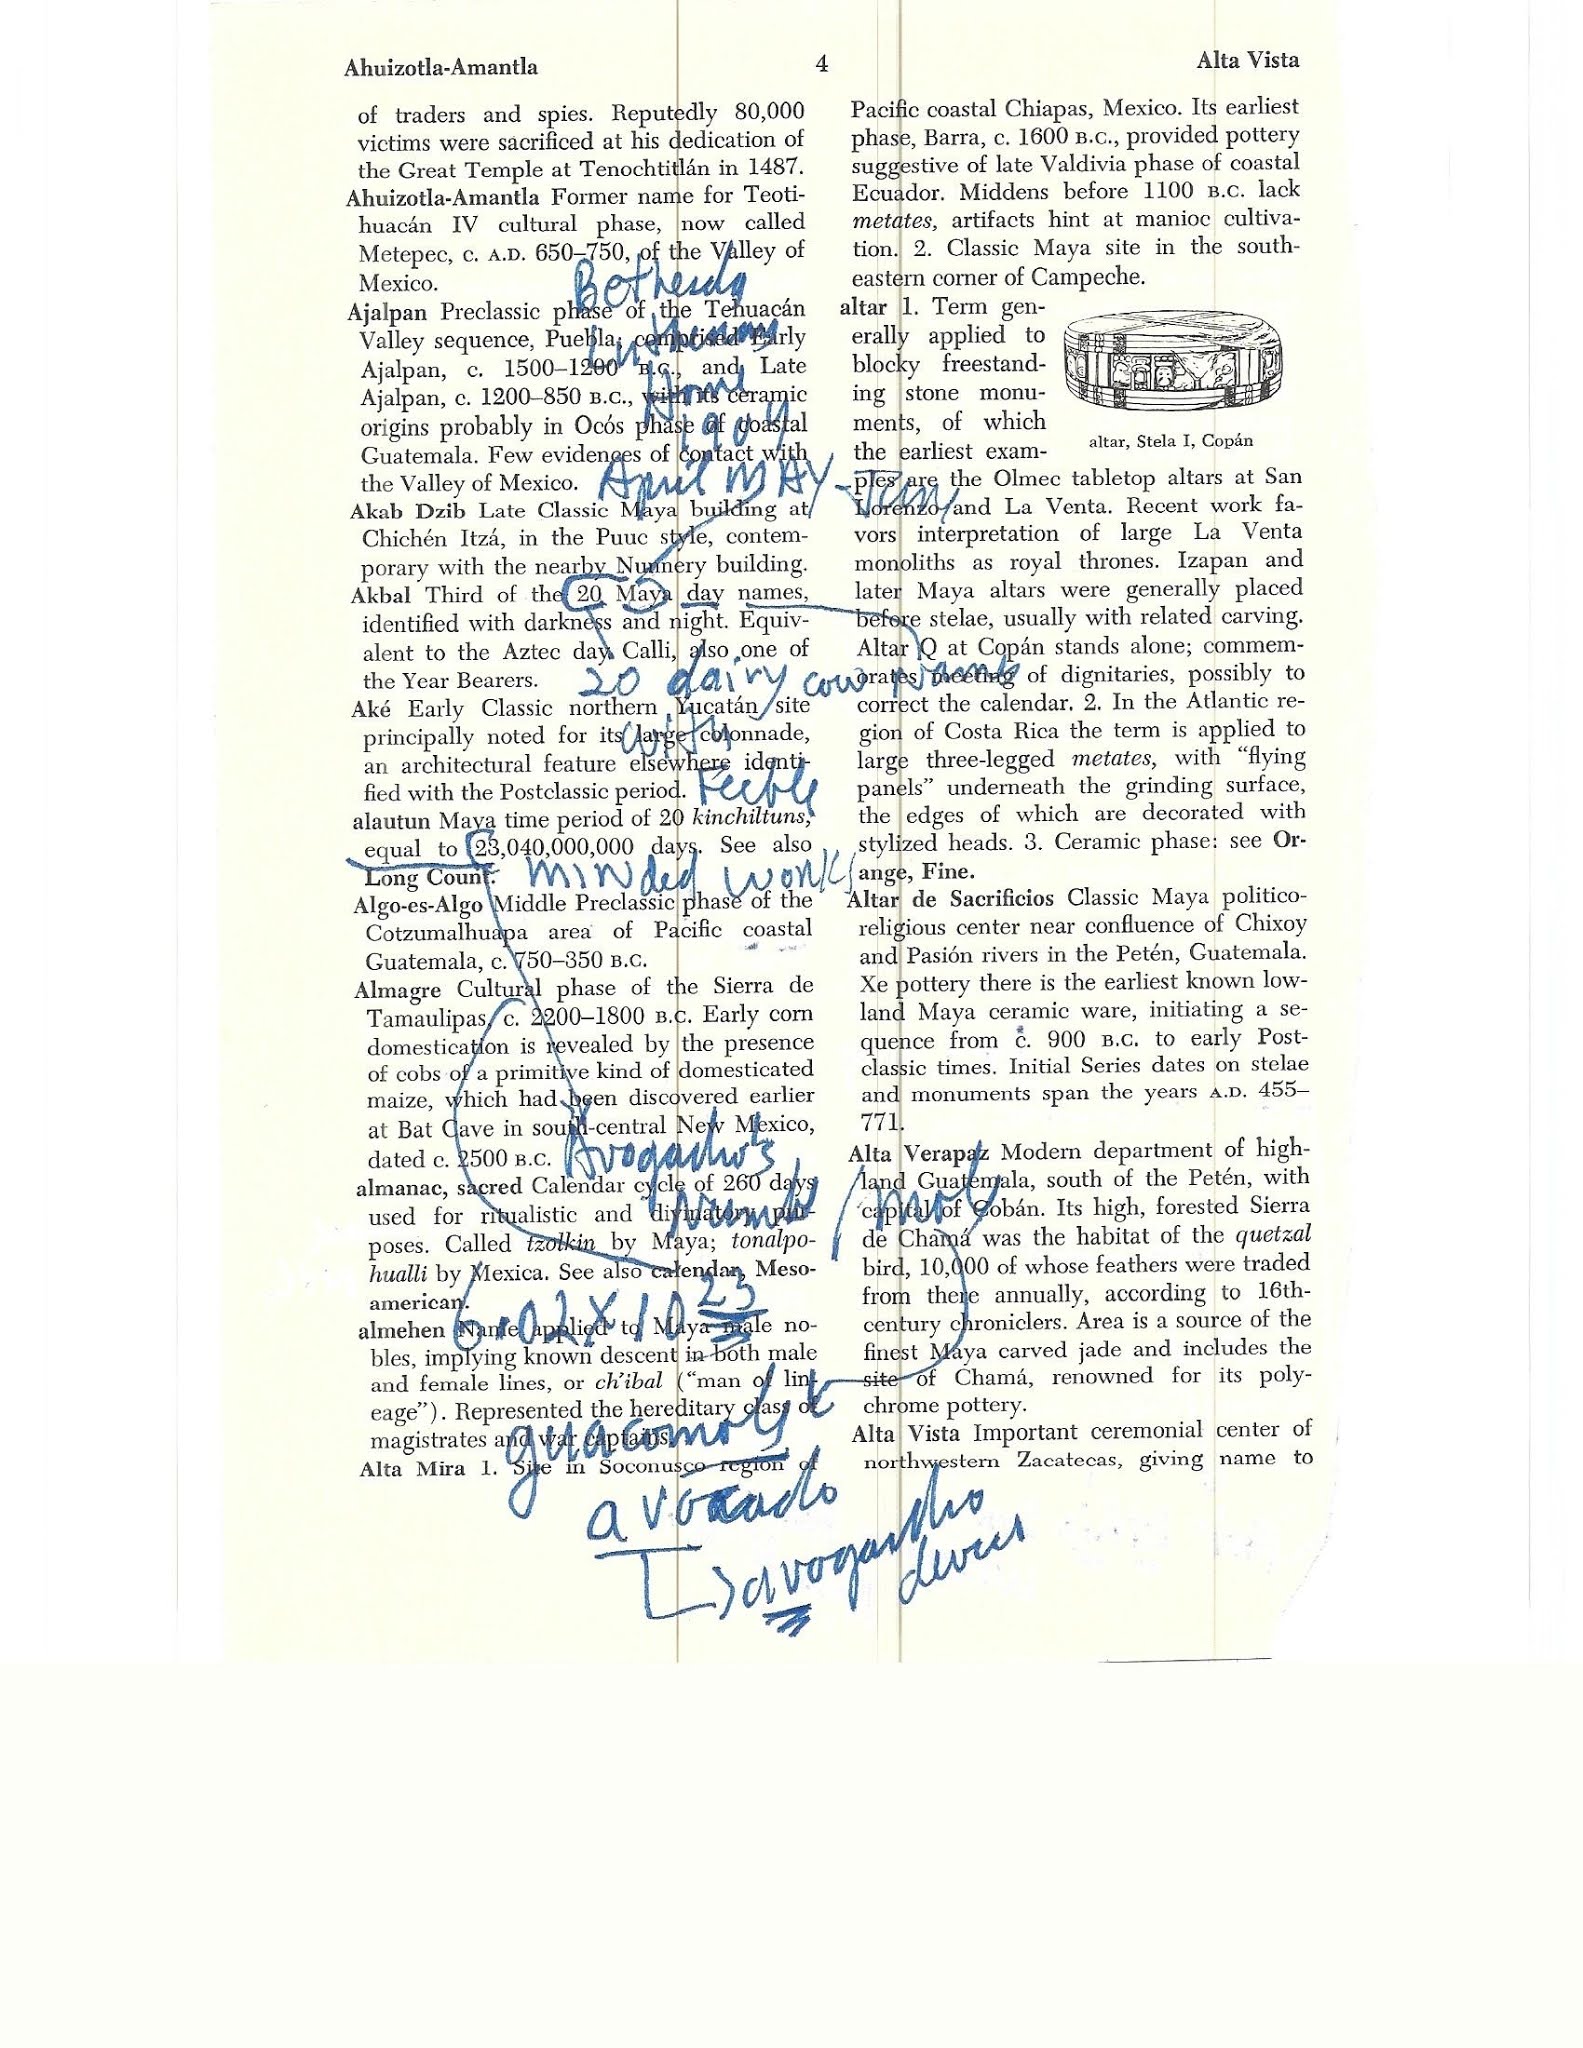 Ahuizotla-Amantla
4
Alta Vista
of traders and spies. Reputedly 80,000
victims were sacrificed at his dedication of
the Great Temple at Tenochtitlán in 1487.
Ahuizotla-Amantla Former name for Teoti-
huacán IV cultural phase, now called
Metepec, c. A.D. 650–750, of the Valley of
Mexico.
Bethesda
Ajalpan Preclassic phase of the Tehuacán
Valley sequence, Puebla; comprised Early
Lutheran
Ajalpan, c. 1500–1200 B.C., and Late
Home
Ajalpan, c. 1200–850 B.C., with its ceramic
origins probably in Ocós phase of coastal
Guatemala. Few evidences of contact with
the Valley of Mexico.
April MAY-Jun
Akab Dzib Late Classic Maya building at
Chichén Itzá, in the Puuc style, contem-
porary with the nearby Nunnery building.
Akbal Third of the 20 Maya day names,
identified with darkness and night. Equiv-
alent to the Aztec day Calli, also one of
the Year Bearers.
20 dairy cow names
Aké Early Classic northern Yucatán site
principally noted for its large colonnade,
with
an architectural feature elsewhere identi-
fied with the Postclassic period.
Feeble
alautun Maya time period of 20 kinchiltuns,
equal to 23,040,000,000 days. See also
Long Count.
minded work
Algo-es-Algo Middle Preclassic phase of the
Cotzumalhuapa area of Pacific coastal
Guatemala, c. 750–350 B.C.
Almagre Cultural phase of the Sierra de
Tamaulipas, c. 2200–1800 B.C. Early corn
domestication is revealed by the presence
of cobs of a primitive kind of domesticated
maize, which had been discovered earlier
at Bat Cave in south-central New Mexico,
dated c. 2500 B.C.
Avogadho's
almanac, sacred Calendar cycle of 260 days
used for ritualistic and divinatory pur-
poses. Called tzolkin by Maya; tonalpo-
hualli by Mexica. See also calendar, Meso-
american.
6.02X10 23
almehen Name applied to Maya male no-
bles, implying known descent in both male
and female lines, or ch'ibal ("man of lin-
eage"). Represented the hereditary class of
magistrates and war captains.
guacomole
Alta Mira 1. Site in Soconusco region of
avocado
avogadho
Pacific coastal Chiapas, Mexico. Its earliest
phase, Barra, c. 1600 B.C., provided pottery
suggestive of late Valdivia phase of coastal
Ecuador. Middens before 1100 B.C. lack
metates, artifacts hint at manioc cultiva-
tion. 2. Classic Maya site in the south-
eastern corner of Campeche.
altar 1. Term gen-
erally applied to
blocky freestand-
ing stone monu-
ments, of which
the earliest exam-
altar, Stela I, Copán
ples are the Olmec tabletop altars at San
Lorenzo and La Venta. Recent work fa-
vors interpretation of large La Venta
monoliths as royal thrones. Izapan and
later Maya altars were generally placed
before stelae, usually with related carving.
Altar Q at Copán stands alone; commem-
orates meeting of dignitaries, possibly to
correct the calendar. 2. In the Atlantic re-
gion of Costa Rica the term is applied to
large three-legged metates, with "flying
panels" underneath the grinding surface,
the edges of which are decorated with
stylized heads. 3. Ceramic phase: see Or-
ange, Fine.
Altar de Sacrificios Classic Maya politico-
religious center near confluence of Chixoy
and Pasión rivers in the Petén, Guatemala.
Xe pottery there is the earliest known low-
land Maya ceramic ware, initiating a se-
quence from c. 900 B.C. to early Post-
classic times. Initial Series dates on stelae
and monuments span the years A.D. 455–
771.
Alta Verapaz Modern department of high-
land Guatemala, south of the Petén, with
/mol
capital of Cobán. Its high, forested Sierra
de Chamá was the habitat of the quetzal
bird, 10,000 of whose feathers were traded
from there annually, according to 16th-
century chroniclers. Area is a source of the
finest Maya carved jade and includes the
site of Chamá, renowned for its poly-
chrome pottery.
Alta Vista Important ceremonial center of
northwestern Zacatecas, giving name to